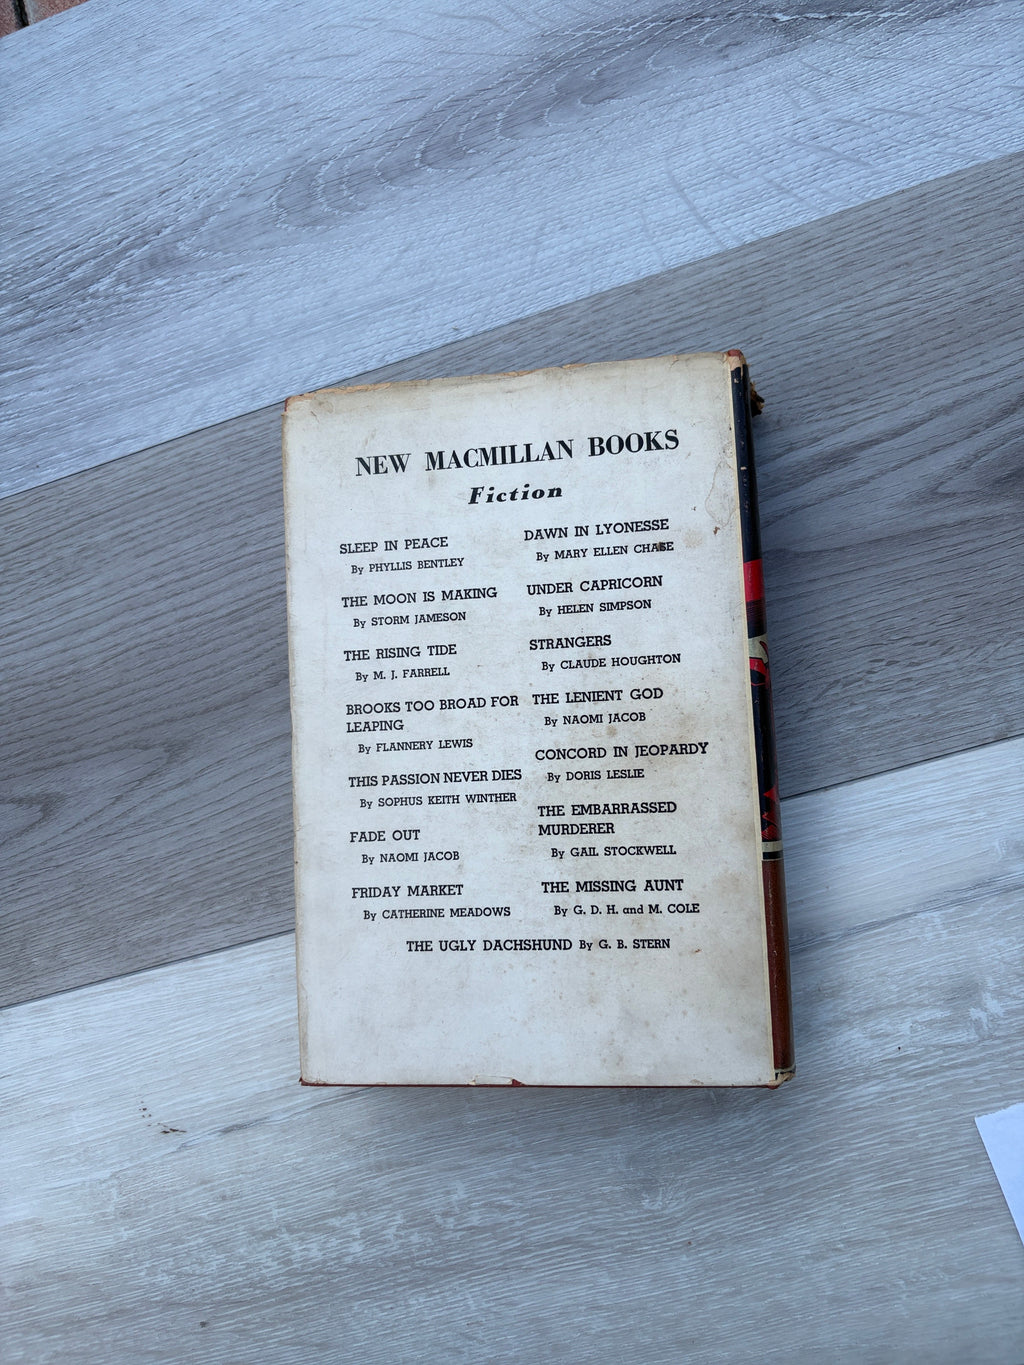 NEW MACMILLAN BOOKS
Fiction
SLEEP IN PEACE
By PHYLLIS BENTLEY
THE MOON IS MAKING
By STORM JAMESON
THE RISING TIDE
By M. J. FARRELL
BROOKS TOO BROAD FOR
LEAPING
By FLANNERY LEWIS
THIS PASSION NEVER DIES
By SOPHUS KEITH WINTHER
FADE OUT
By NAOMI JACOB
FRIDAY MARKET
By CATHERINE MEADOWS
DAWN IN LYONESSE
By MARY ELLEN CHASE
UNDER CAPRICORN
By HELEN SIMPSON
STRANGERS
By CLAUDE HOUGHTON
THE LENIENT GOD
By NAOMI JACOB
CONCORD IN JEOPARDY
By DORIS LESLIE
THE EMBARRASSED
MURDERER
By GAIL STOCKWELL
THE MISSING AUNT
By G. D. H. and M. COLE
THE UGLY DACHSHUND By G. B. STERN